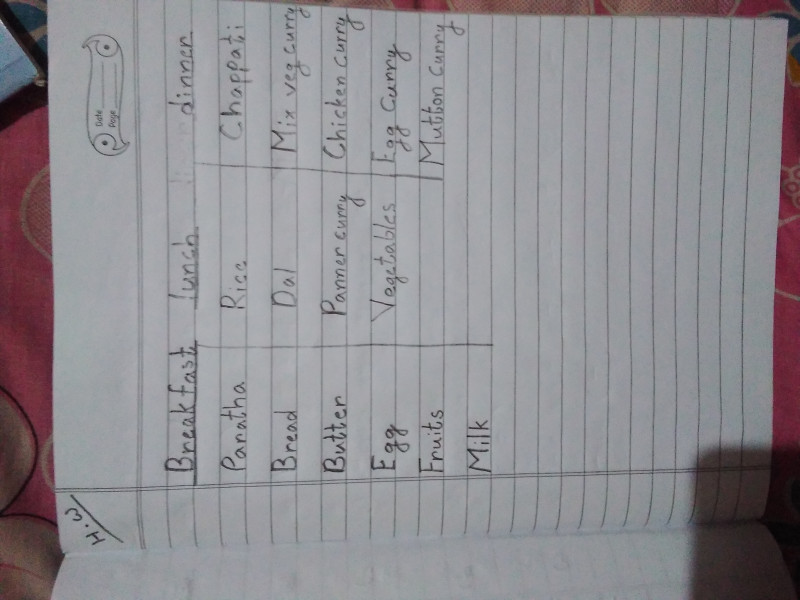 Date
Page
H.W
Breakfast lunch dinner
Paratha Rice Chappati
Bread Dal Mix veg curry
Butter Panner curry Chicken curry
Egg Vegetables Egg curry
Fruits Mutton curry
Milk